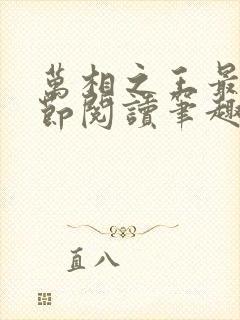 萬相之王最
節閱讀筆趣
直八